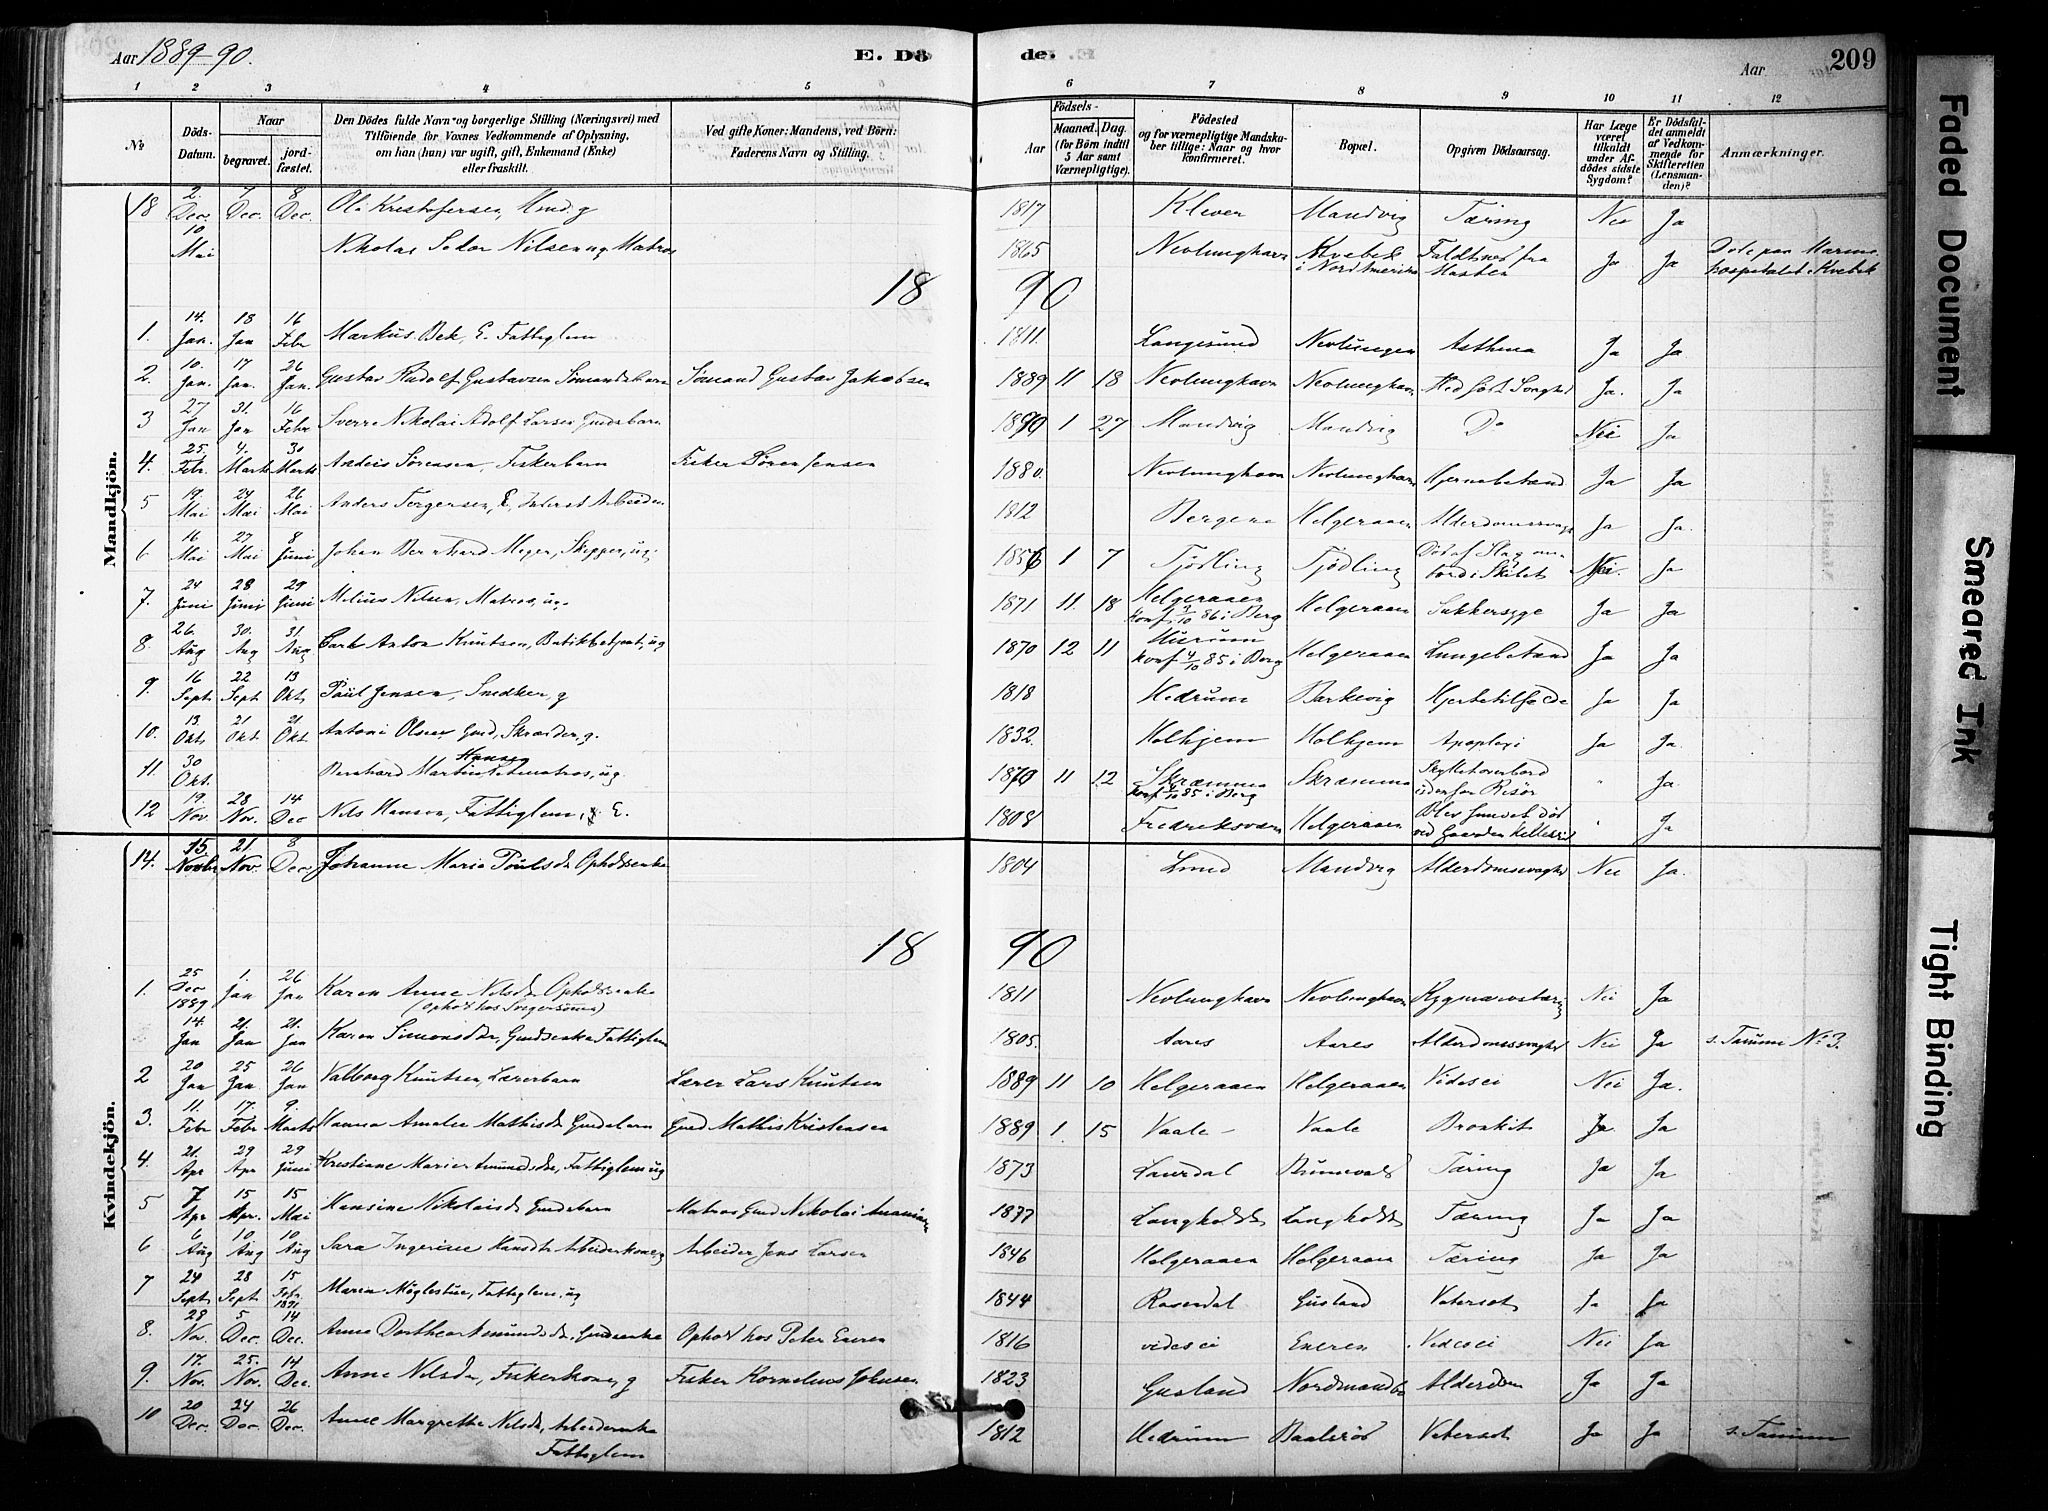 Aar 1889-90.
E. Dö
de.
Aar
209
1 2 3 4 5 6 7 8 9 10 11 12
No
Döds-Datum.
Naar
begravet.
jord-fæstet.
Den Dödes fulde Navn og borgerlige Stilling (Næringsvei) med
Tilföiende for Voxnes Vedkommende af Oplysning,
om han (hun) var ugift, gift, Enkemand (Enke)
eller fraskilt.
Ved gifte Koner: Mandens, ved Börn:
Faderens Navn og Stilling.
Födsels-
Aar
Maaned. Dag.
(for Börn indtil
5 Aar samt
Værnepligtige).
Födested
og for værnepligtige Mandska-
ber tillige: Naar og hvor
konfirmeret.
Bopæl.
Opgiven Dödsaarsag.
Har Læge
været
tilkaldt
under Af-
dödes sidste
Sygdom?
Er Dödsfal-
det anmeldt
af Vedkom-
mende for
Skifteretten
(Lensman-
den)?
Anmærkninger.
Mandkjön.
18 2. Dec. 7 Dec. 8 Dec. Ole Kristofersen, g 1817 Klever Mandvig Tæring Nei Ja
10 Mai Nikolai Nilsen ug Matros 1865 Nevlunghavn i Nordamerika fra Masten Ja Ja Døde paa Marine hospitalet i Kvebek
18 90
1. 14. Jan. 18 Jan 16 Febr Markus Bek, E. Fattiglem 1811. Langesund Asthma Ja Ja
2. 10. Jan. 17 Jan. 26 Jan. Gustav Rudolf Gustavsen Sømandsbarn Sømand Gustav Jakobsen 1889 11 18 Nevlunghavn Nevlunghavn Ja. Ja
3 27 Jan 31. Jan 16 Febr Sverre Nikolai Adolf Larsen 1890 1 27 Mandvig Mandvig Do Nei Ja
4. 25. Febr. 4. Marts 30 Marts Anders Sørensen, Fiskerbarn Fisker Søren Jensen 1880. Nevlunghavn Nevlunghavn Hjernebetænd Ja Ja
5 19. Mai 24 Mai 26 Mai Anders Torgersen, E, Inderst Arbeider 1812 Bergene Helgeraaen Ja Ja.
6 16 Mai 27 Mai 8 Juni Johan Bernhard Meyer, Skipper, ug. 1856 1 7 Tjødling Tjødling Død af Slag om- bord i Skibet Nei. Ja
7. 24 Juni 28 Juni 29 Juni Milius Nilsen, Matros, ug. 1871 11. 18 Helgeraaen konf 3/10 86 i Berg Helgeraaen Sukkersyge Ja Ja
8 26. Aug 30. Aug 31. Aug Carl Anton Knutsen, Butikbetjent, ug 1870 12 11 Hurum konf 4/10 85 i Berg Helgeraaen Lungebetænd Ja Ja
9. 16 Sept 22 Sept 13 Okt Paul Jensen, Snedker, g 1818 Hedrum Barkevig Hjertetilfælde Ja Ja
10. 13. Okt 21 Okt. 21. Okt. Antoni Olsen Skrædder, g. 1832. Holhjem Holhjem Apoplexi Ja Ja.
11. 30 Okt. Bernhard Martin Hansen Matros, ug 1870 11 12 Skræmma konf 4/10 85 i Berg Skræmma Ja.
12 19. Nov. 28 Nov. 14 Dec Nils Hansen, Fattiglem, E. 1808 Fredriksværn Helgeraaen Blev funden død ved Gaarden Ja
Kvindekjön.
14. 15. Novbr 21. Nov. 8 Dec. Johanne Maria Poulsdt. Opholdsenke 1804 Lund Mandvig Alderdomssvaghd Nei Ja.
18 90
1. 25 Dec 1889 1. Jan 26 Jan Karen Anne Nilsdt. Opholdsenke
(Ophold hos Svigersønnen) 1811 Nevlunghavn Nevlunghavn Rygmarvstæring Nei Ja
14. Jan 21. Jan 21. Jan Karen Simonsdtr, Fattiglem 1805. Aares Aares Alderdomssvaghd Nei Ja s. Tanum No 3.
2 20 Jan 25 Jan 26 Jan Valborg Knutsen, Lærerbarn Lærer Lars Knutsen 1889 11 10 Helgeraaen Helgeraaen Videsei Nei Ja.
3. 11. Febr 17. Febr 9. Marts Hanna Amalie Mathisdt. Gmd Mathis Kristensen 1889 1. 15 Vaale Vaale Bronkit Ja Ja
4. 21. Apr 29 Apr 29 Juni Kristiane Marie Amundsdtr, Fattiglem ug 1873 Laurdal Tæring Ja Ja
5 7 Apr 15 Apr. 15 Mai Hansine Nikolaisdt. Matros Gmd Nikolai 1877 Langholdt Langholdt Tæring Ja Ja
6 6 Aug 10 Aug 10 Aug Sara Ingerine Hansdtr Arbeiderkone, g Arbeider Jens Larsen 1846 Helgeraaen Helgeraaen Tæring Ja Ja
7 24 Sept 28 Sept 15 Febr. 1891 Maren Møglestue, Fattiglem, ug 1844 Rosendal Gusland Vatersot Ja Ja
8. 28 Nov. 5 Dec. 14 Dec. Anne Dorthea Amundsdt. Ophold hos Peter Eneren 1816 videsei Eneren Videsei Nei Ja
9. 17. Nov. 25. Nov. 14 Dec. Anne Nilsdtr, Fiskerkone, g Fisker Kornelius Johnsen 1823 Gusland Ja Ja
10 20 Dec. 24 Dec. 26 Dec. Anne Margrethe Nilsdt, Arbeiderenke
Fattiglem 1812 Hedrum Vatersot Ja Ja s. Tanum
Faded Document
Smeared Ink
Tight Binding